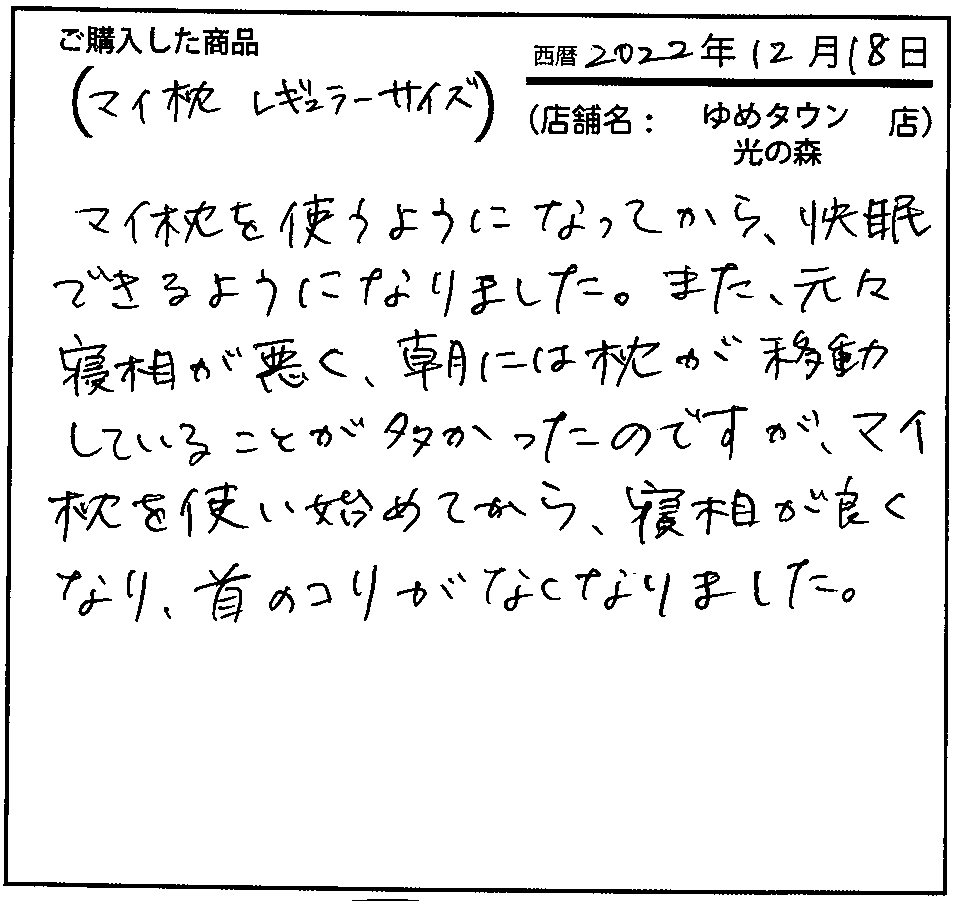 ご購入した商品
西暦 2022年12月18日
(マイ枕 レギュラーサイズ)
(店舗名： ゆめタウン 店)
光の森
マイ枕を使うようになってから、快眠
できるようになりました。また、元々
寝相が悪く、朝には枕が移動
していることが多かったのですが、マイ
枕を使い始めてから、寝相が良く
なり、首のコリがなくなりました。